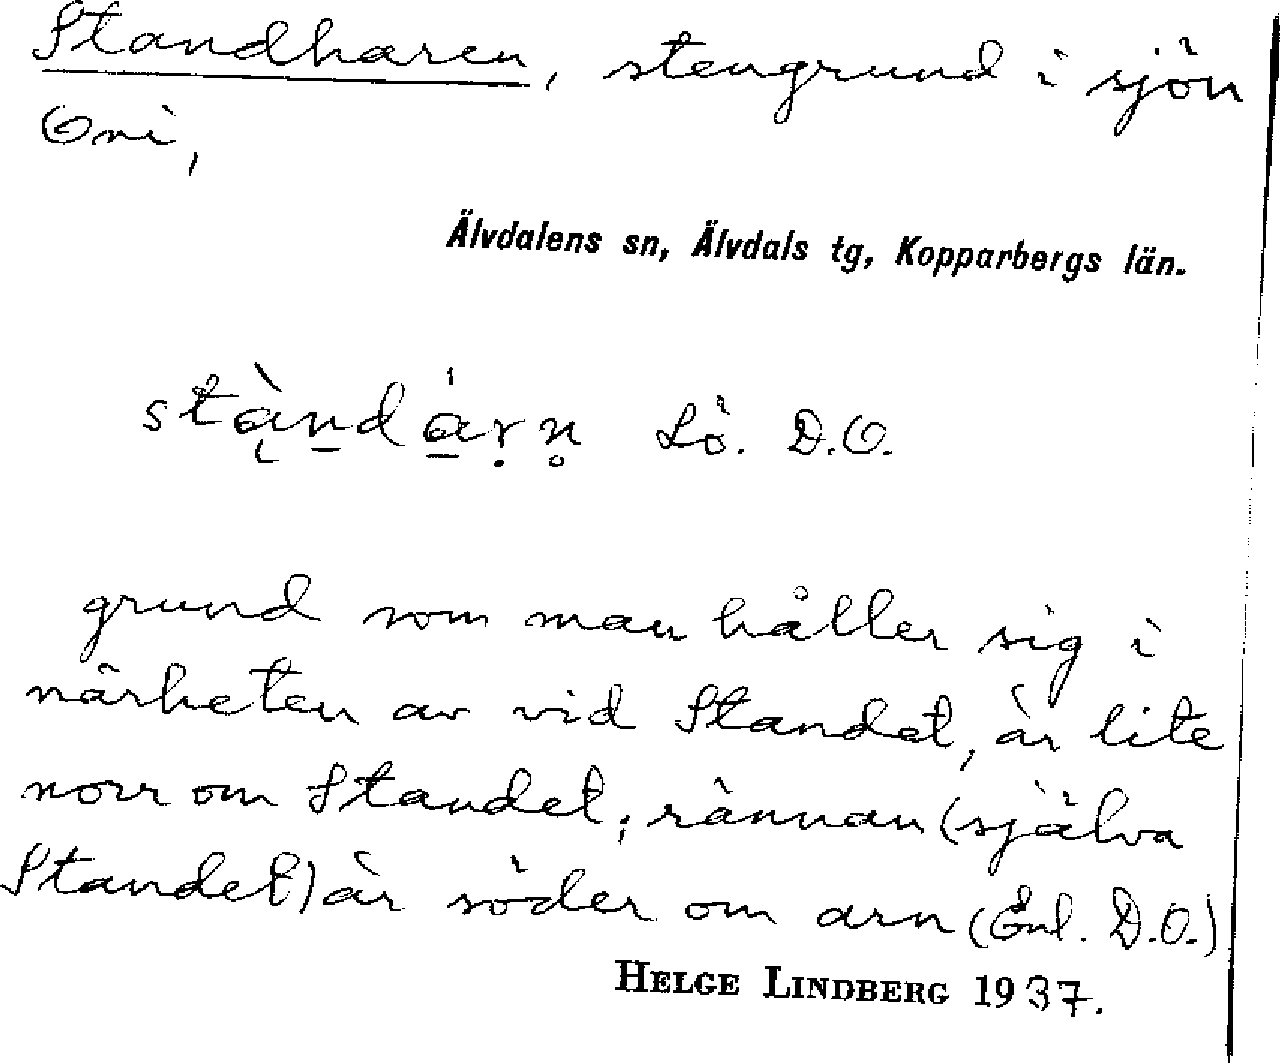 Standharen, stengrund i sjön
Orri,
Älvdalens sn, Älvdals tg, Kopparbergs län.
Lö. D.O.
grund som man håller sig i
närheten av vid Standet, är lite
norr om Standet; rännan (själva
Standet) är söder om arn (Enl. D.O.)
HELGE LINDBERG 1937.